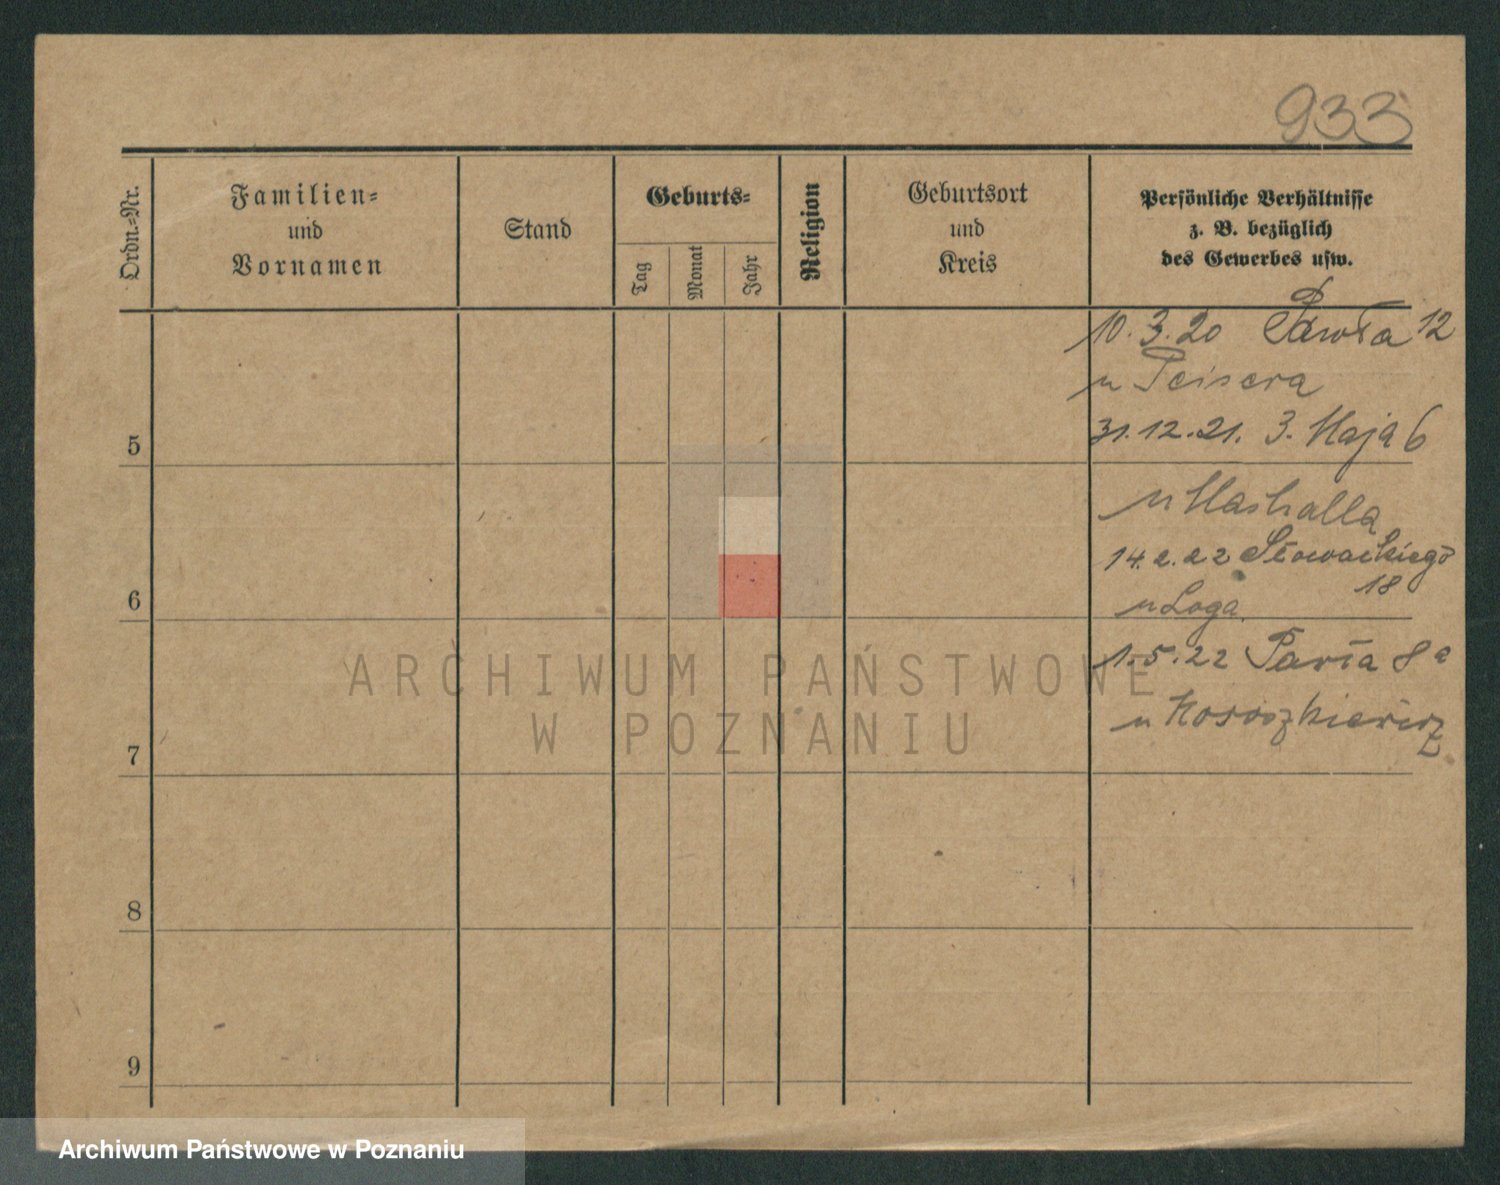 933
Ordn.=Nr.
Familien=
und
Vornamen
Stand
Geburts=
Tag
Monat
Jahr
Religion
Geburtsort
und
Kreis
Persönliche Verhältnisse
z. B. bezüglich
des Gewerbes usw.
10.3.20 Pawła 12
u Peisera
31.12.21. 3. Maja 6
5
u
14.2.22 Słowackiego
18
u Loga
6
1.5.22 Pawła 8a
u
7
8
9
ARCHIWUM PAŃSTWOWE
W POZNANIU
Archiwum Państwowe w Poznaniu